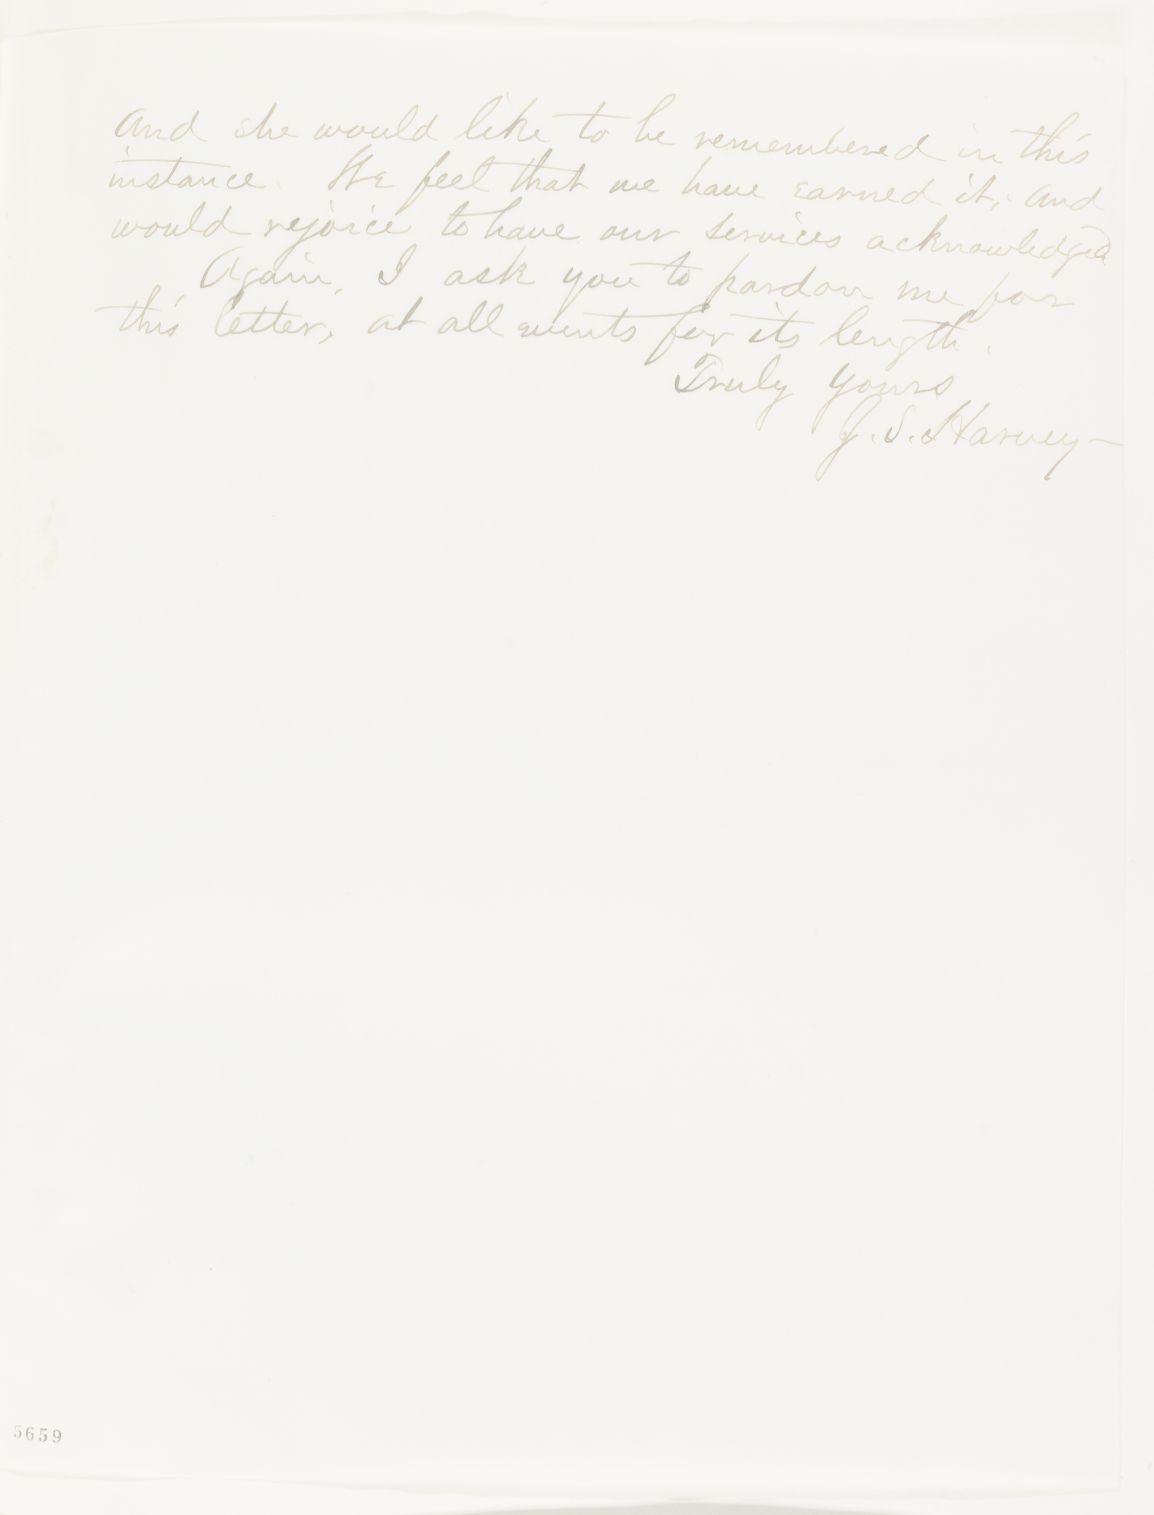 and she would like to be remembered in this
instance. We feel that we have earned it, and
would rejoice to have our services acknowledged
Again, I ask you to pardon me for
this letter, at all events for its length.
Truly Yours
J. S. Harvey—
5659